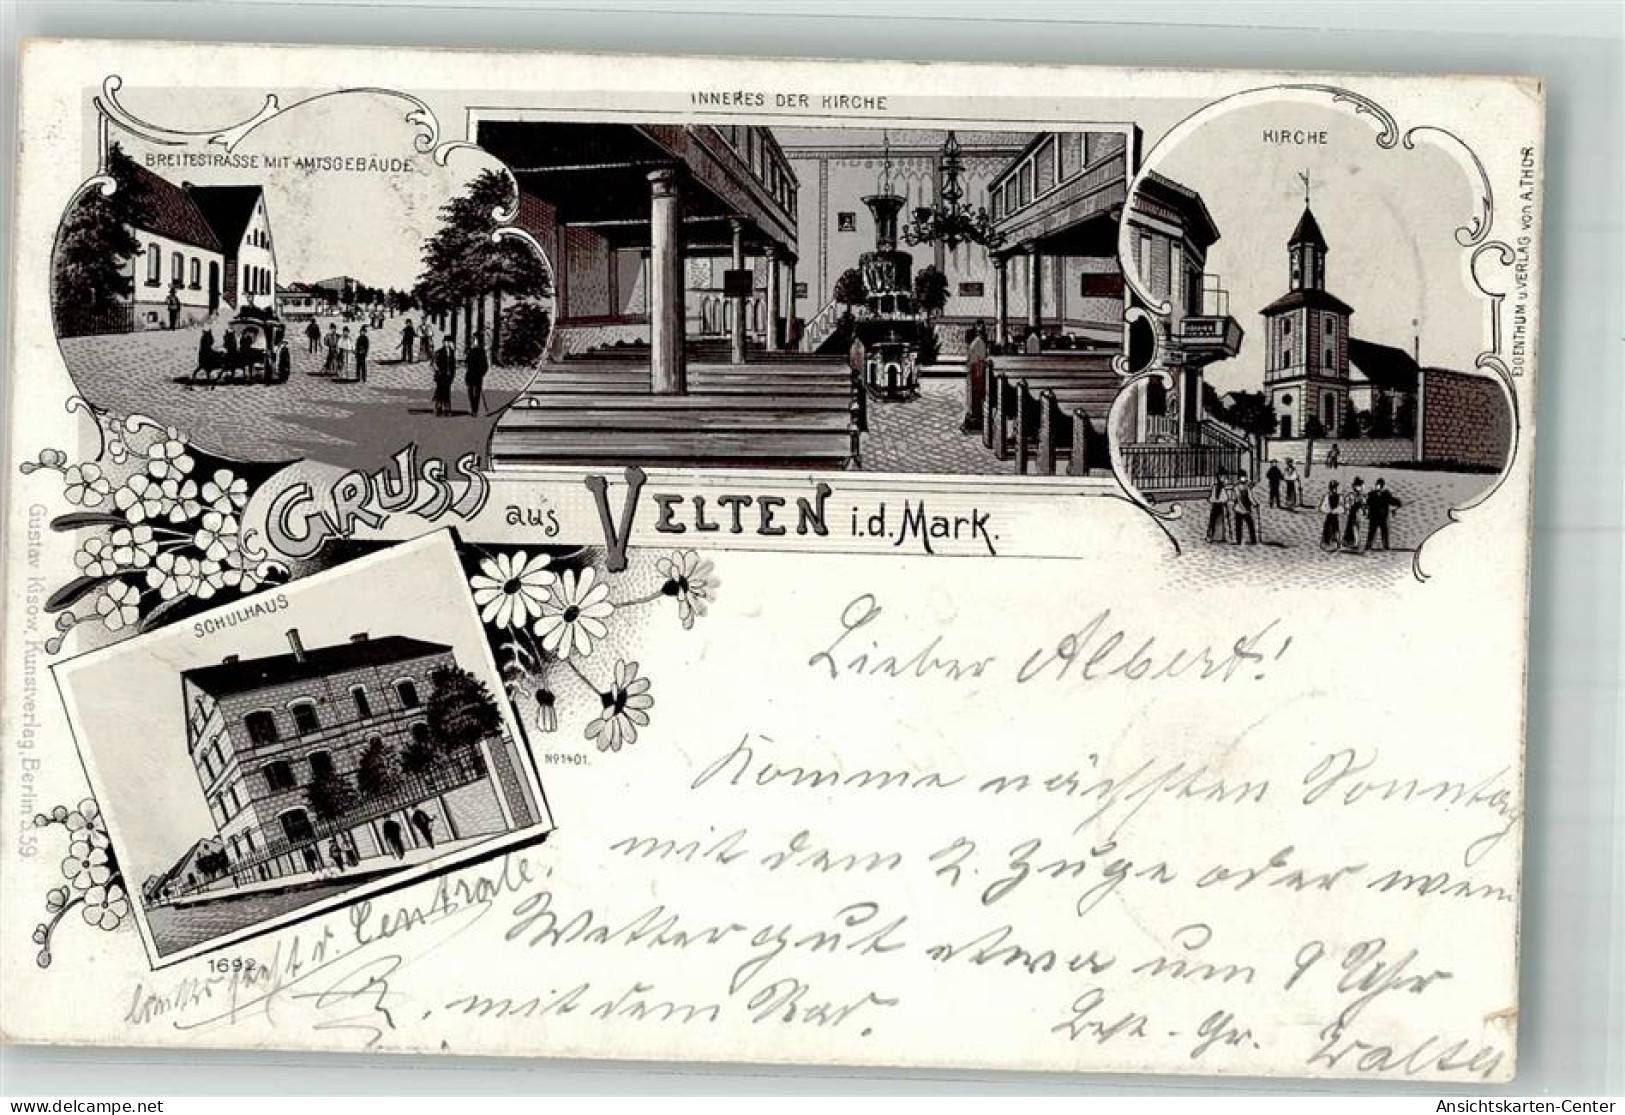 INNERES DER KIRCHE
BREITESTRASSE MIT AMTSGEBÄUDE
KIRCHE
EIGENTHUM u. VERLAG von A. THÜR
GRUSS aus VELTEN i.d. Mark.
Gustav Kisow, Kunstverlag, Berlin S. 59
SCHULHAUS
No 1401.
1692
Lieber Albert!
Komme nächsten Sonntag
mit dem 2. Zuge oder wenn
Wetter gut etwa um 9 Uhr
mit dem Rad.
Best. Gr. Walter
Centrale.
delcampe.net
Ansichtskarten-Center